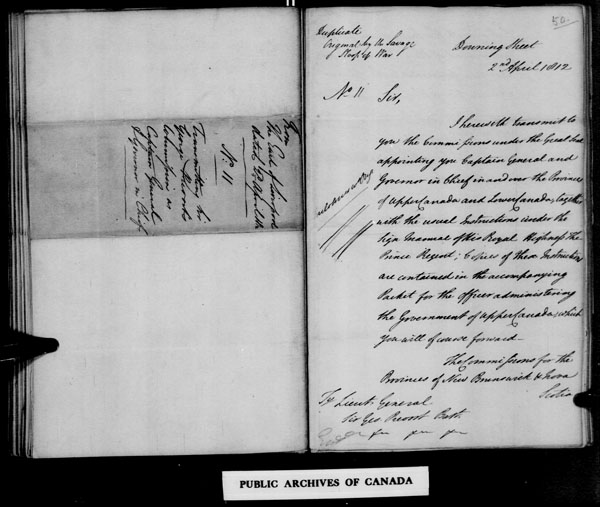 From
The Earl of Liverpool
dated 2d April 1812
No. 11
Transmitting his
George Prevost's
Commissions as
Captain General
& Governor in Chief
50.
Duplicate
Original by the Savage
Sloop of War
Downing Street
2nd April 1812
No 11 Sir,
I herewith transmit to
you the Commissions under the Great Seal
appointing you Captain General and
Governor in Chief in and over the Provinces
of Upper Canada and Lower Canada, together
with the usual Instructions under the
Sign Manual of His Royal Highness the
Prince Regent; Copies of these Instructions
are contained in the accompanying
Packet for the Officer administering
the Government of Upper Canada, which
you will of course forward—
The Commissions for the
Provinces of New Brunswick & Nova
Scotia
To Lieut. General
Sir Geo. Prevost Bart.
PUBLIC ARCHIVES OF CANADA